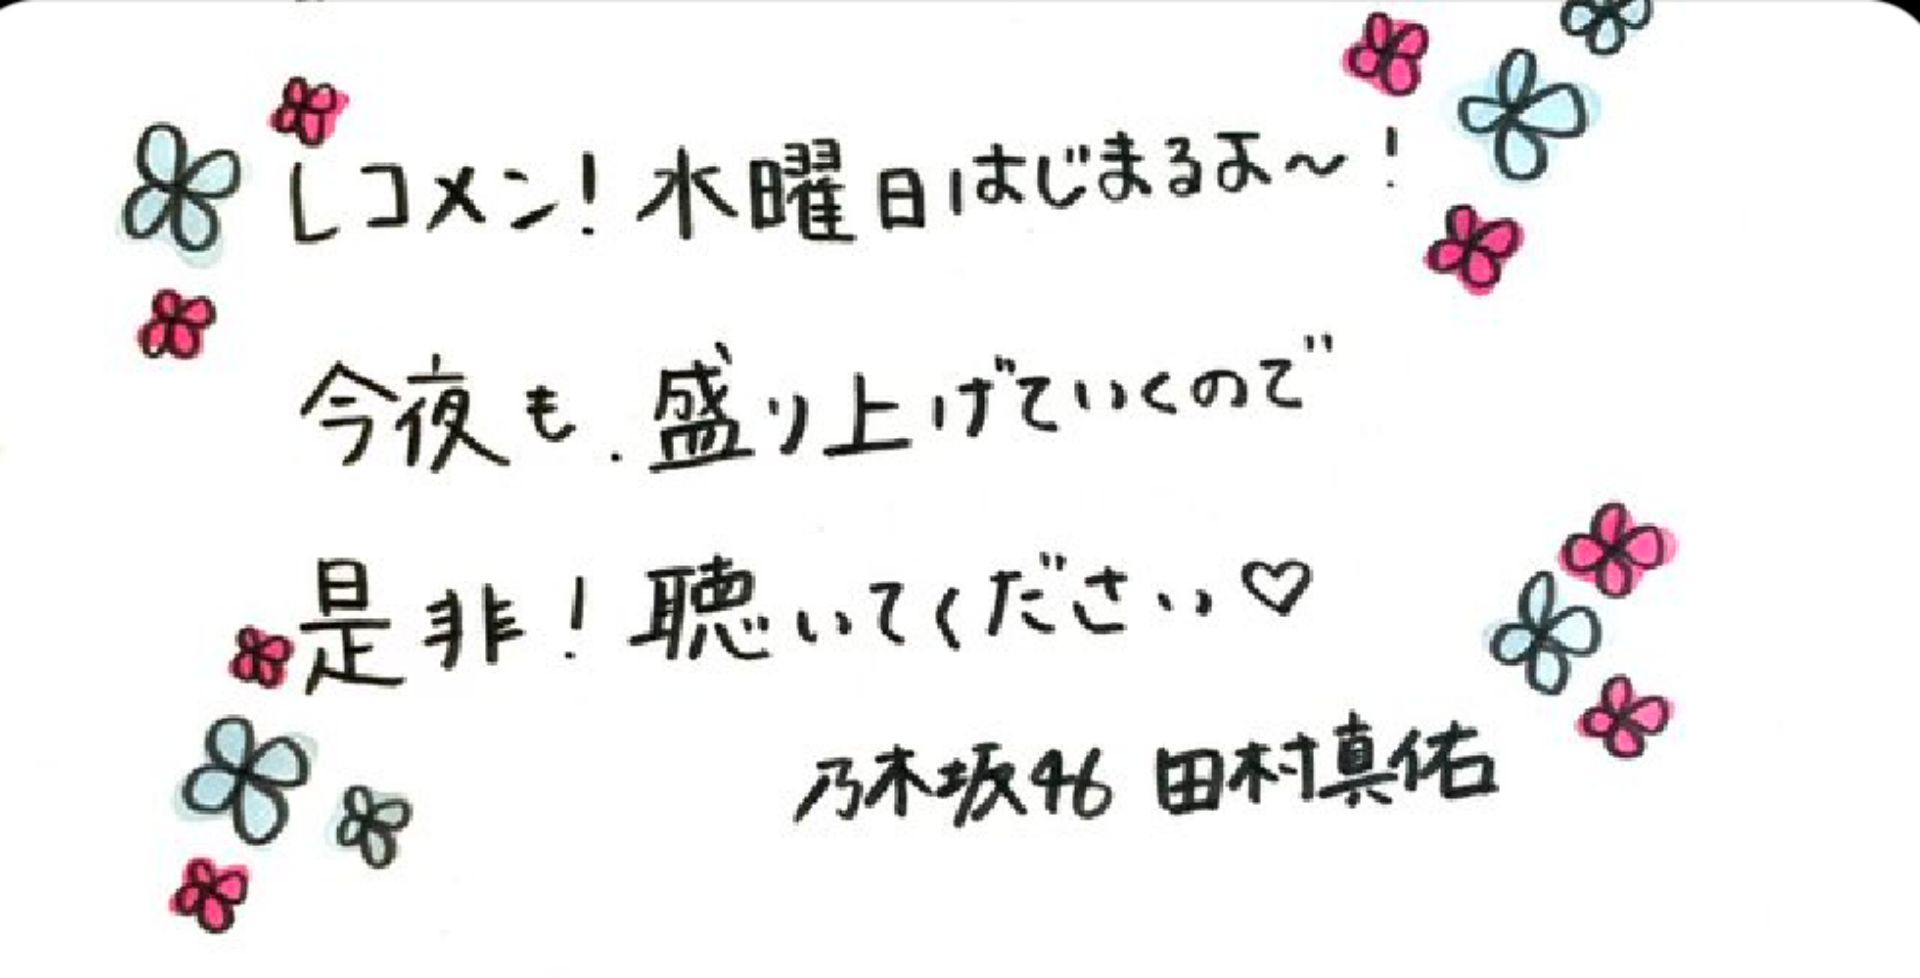 レコメン！水曜日はじまるよ〜！
今夜も、盛り上げていくので
是非！聴いてください♡
乃木坂46 田村真佑